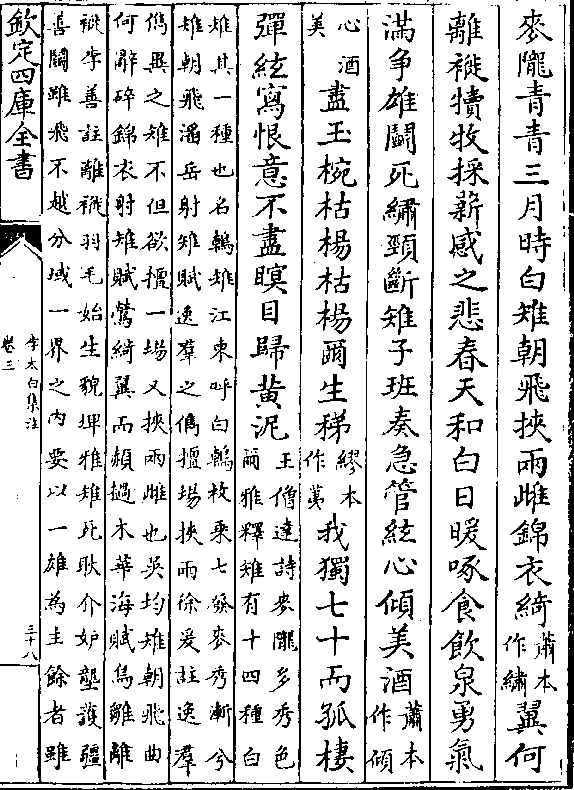 麥隴青青三月時白雉朝飛挾兩雌錦衣綺蕭本作繡翼何
離褷犢牧採薪感之悲春天和白日暖啄食飲泉勇氣
滿爭雄鬭死繡頸斷雉子班奏急管絃心傾美酒蕭本作傾
心酒美盡玉椀枯楊枯楊爾生稊繆本作荑我獨七十而孤棲
彈絃寫恨意不盡瞑目歸黄泥王僧達詩麥隴多秀色
爾雅釋雉有十四種白
雉其一種也名鵫雉江東呼白鵫枚乗七發麥秀漸兮
雉朝飛潘岳射雉賦逸羣之儁擅場挾兩徐爰註逸羣
儁異之雉不但欲擅一場又挾兩雌也吳均雉朝飛曲
何辭碎錦衣射雉賦鶯綺翼而赬撾木華海賦鳥雛離
褷李善註離褷羽毛始生貌埤雅雉死耿介妒壟護疆
善鬭雖飛不越分域一界之内要以一雄為主餘者雖
欽定四庫全書
李太白集注
卷三
三十八